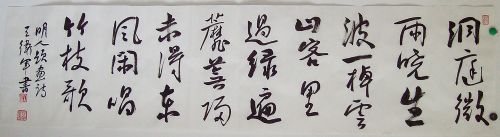 洞庭微
雨晓生
波一棹云
山客里
过绿遍
蘼芜归
未得东
风闲唱
竹枝歌
明人题画诗
书